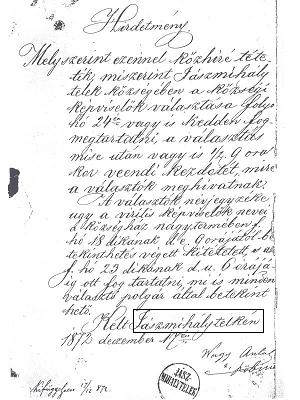 Hirdetmény
Mely szerint ezennel közhirré téte-
tik, miszerint Jászmihály
telek községében a községi
képviselők választása folyó
hó 24én vagy is kedden fog
megtartatni a választás
mise után vagy is 1/2 9 óra
kor veendi kezdetét, mire
a választók meghivatnak:
A választók névjegyzéke
ugy a virilis képviselők nevei
a községház nagytermében f. hó
f. hó 18 dikának d. e. 9 órájától be
tekinthetés végett kitétetett, s az
f. hó 23 dikának d. u. 6 órájá
ig ott fog tartatni, mi is minden
választó polgár által betekint
hető.
Kelt Jászmihálytelkén
1872 december 17én
Nagy Antal
JÁSZ
MIHÁLYTELEK
Kifüggesztve